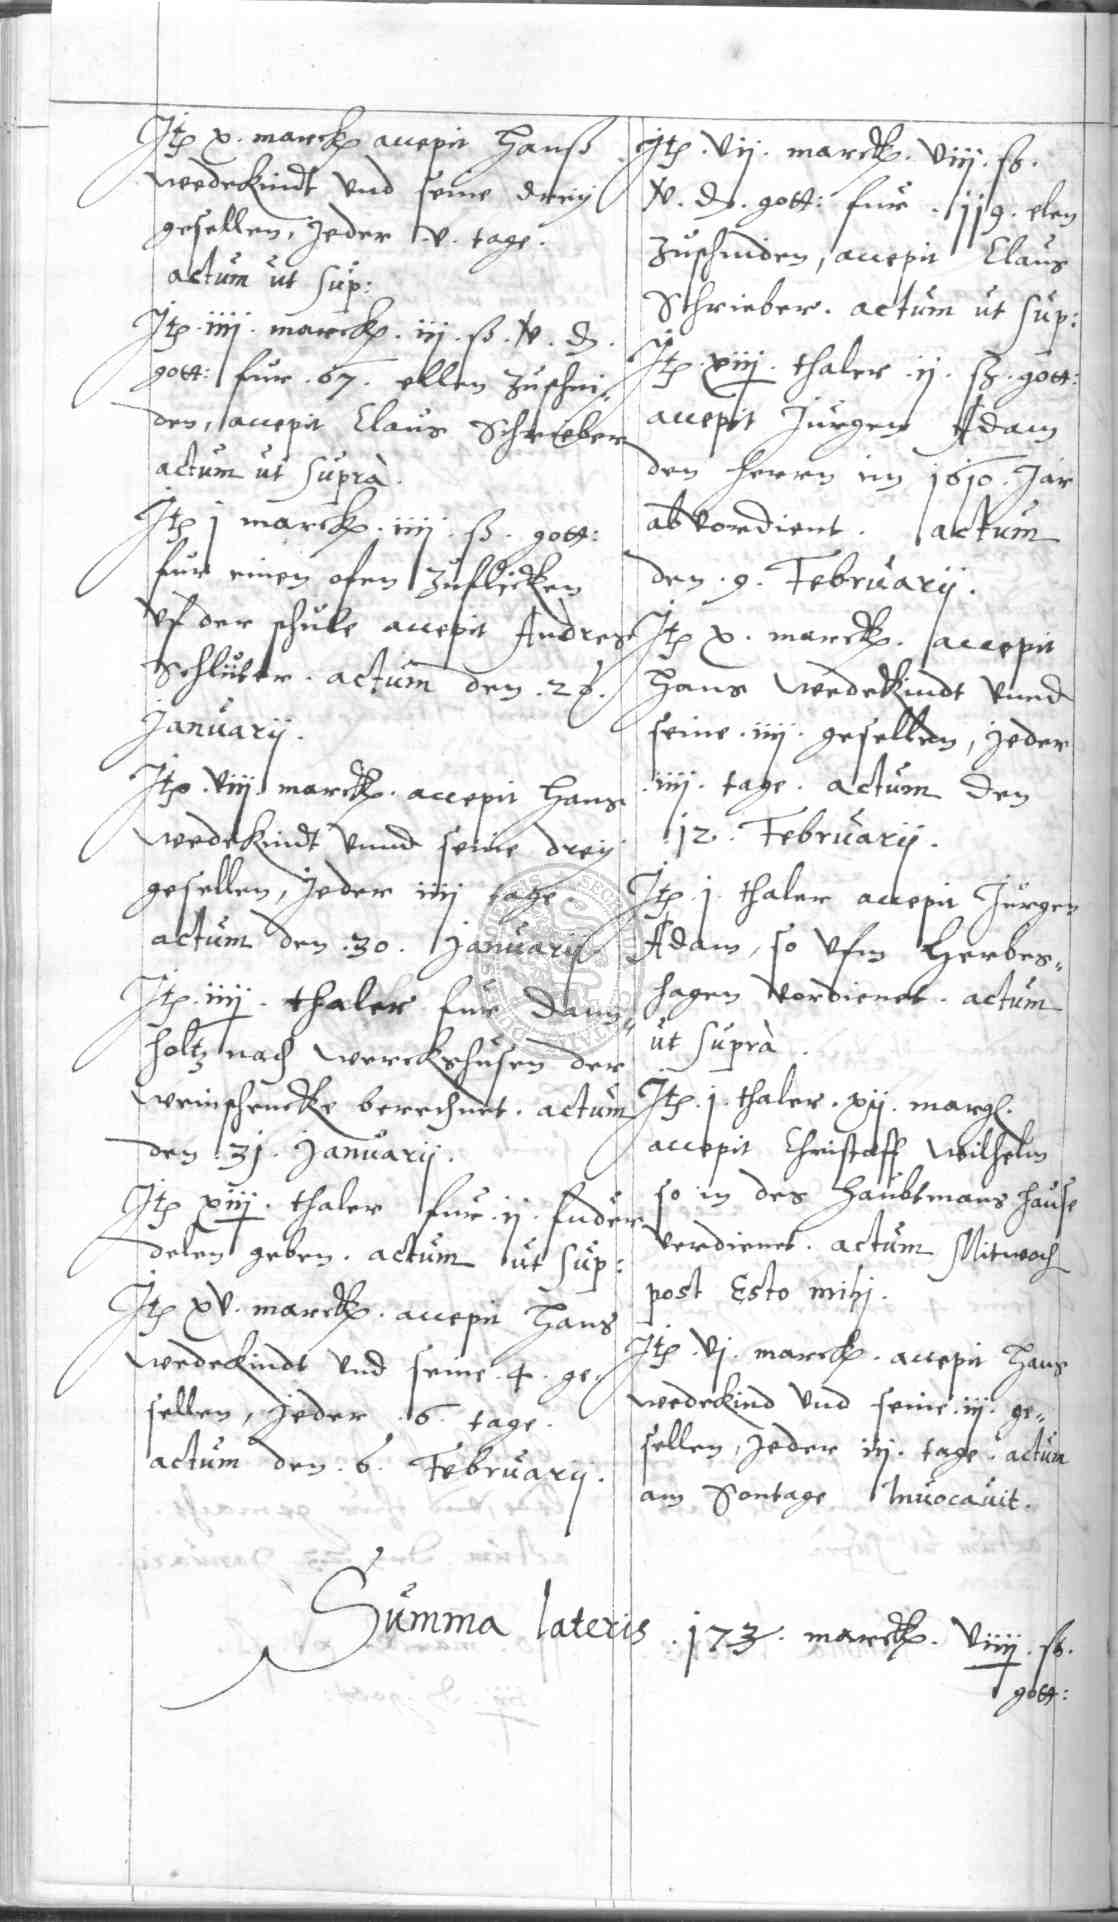 Itp x. marck accepit Hanß
wedekindt vnd seine dreÿ
gesellen, Jeder .v. tage.
actum ut sup:
Itp iiij. marck. iij. ß. N. d.
gott: fur .67. ellen zuschni-
den, accepit Claus Schrieber
actum ut suprà.
Itp j marck. iiij. ß. gott:
fur einen ofen zuflicken
vf der schule accepit Andres
Schluter. actum den .26.
Januarij.
Itp .viij. marck. accepit Hans
wedekindt vnnd seine dreÿ
gesellen, Jeder iiij tage.
actum den .30. Januarij.
Itp .iiij. thaler fur Dann-
holtz nach werckshusen der
weinschencke berechnet. actum
den .31. Januarij.
Itp xiij. thaler fur .ij. fuder
delen geben. actum ut sup:
Itp xv. marck. accepit Hans
wedekindt vnd seine .4. ge-
sellen, Jeder .6. tage.
actum den .6. Februarij.
Itp .vij. marck. viij. ß.
N. d. gott: fur .119. elen
zuschniden, accepit Claus
Schrieber. actum ut sup:
Itp .xiij. thaler .ij. ß. gott:
accepit Jurgen Adam
den herrn im 1610. Jar
abvordient. actum
den .9. Februarij.
Itp x. marck. accepit
Hans wedekindt vnnd
seine .iiij. gesellen, Jeder
.iiij. tage. actum den
12. Februarij.
Itp .j. thaler accepit Jurgen
Adam, so vfm Herbes-
hagen vordienet. actum
ut suprà.
Itp .j. thaler. xij. margl.
accepit Christoff wilhelm
so in des Haubtmans hause
verdienet. actum Mitwoch
post Esto mihi.
Itp .vj. marck. accepit Hans
wedekind vnd seine .iij. ge-
sellen, Jeder iij. tage. actum
am Sontage Invocauit.
Summa lateris .173. marck. viiij. ß.
gott: